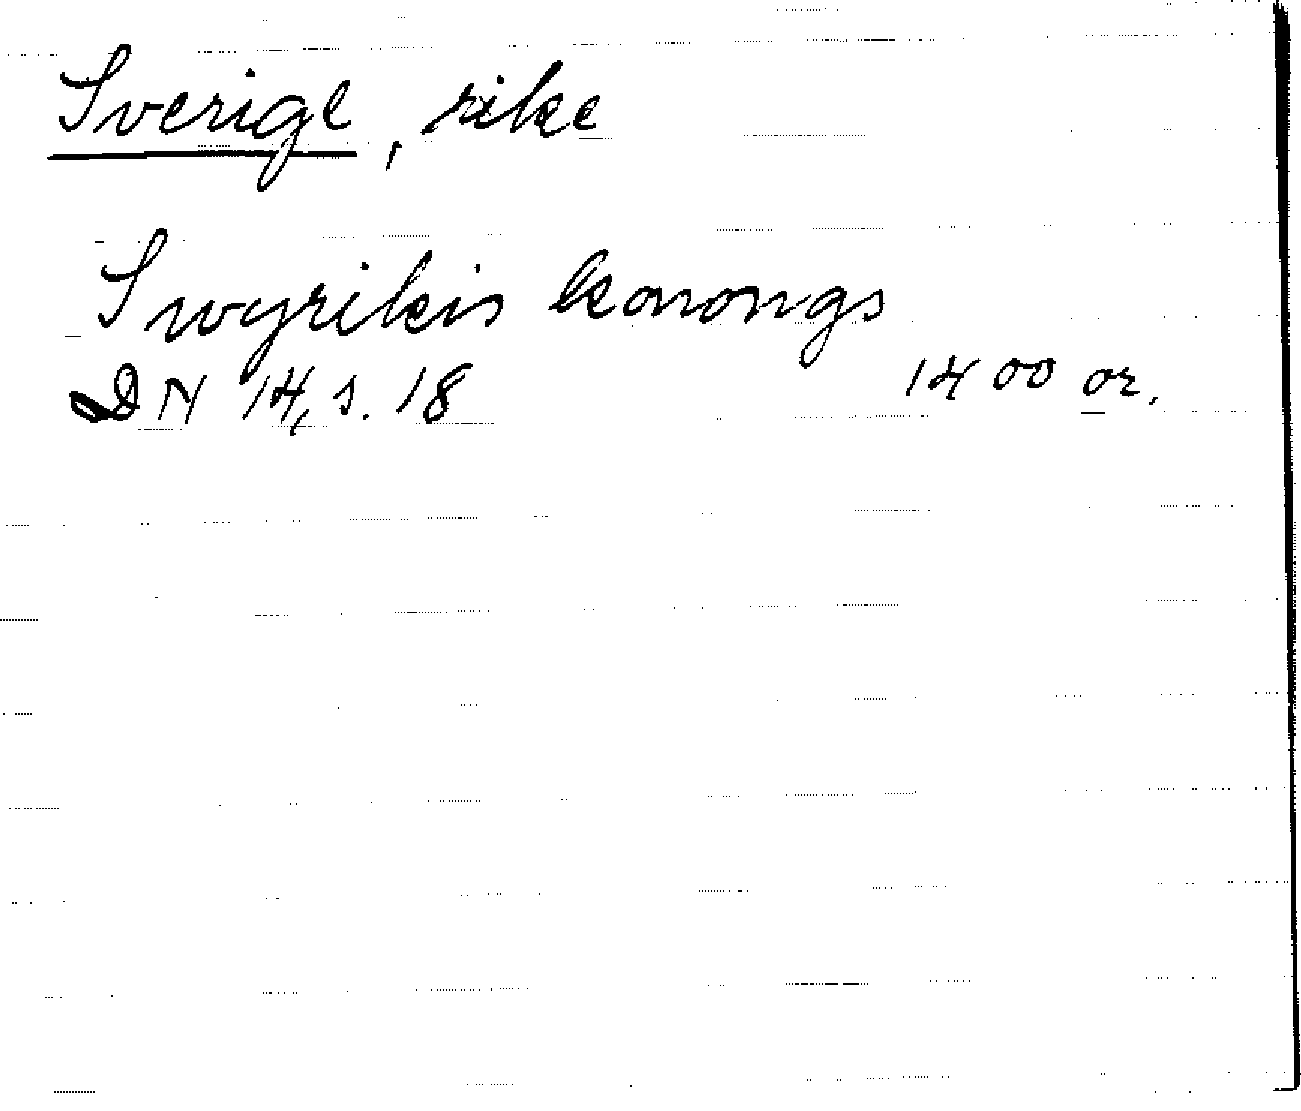 Sverige, rike
Swyrikis konongs
DN 14, s. 18 1400 or.